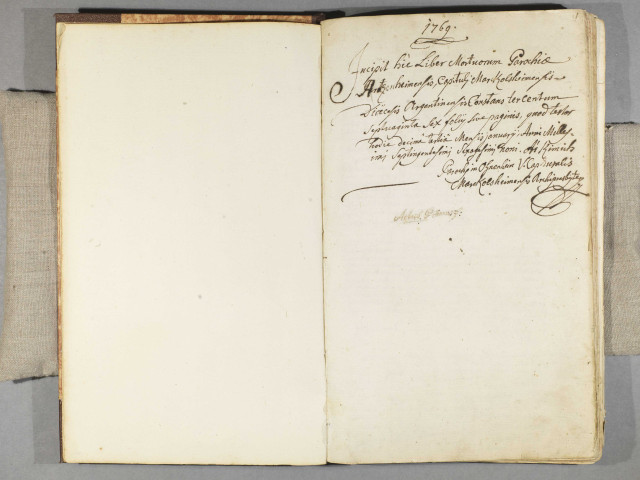 1769.
Incipit hic Liber Mortuorum Parochiæ
Artzenheimensis, Capituli Markolsheimensis
Diœcesis Argentinensis Constans tercentum
Septuaginta Sex foliis sive paginis, quod testor
hodie decima tertia Mensis januarij Anni Mille-
simi Septingentesimi Sexagesimi Noni.
Parochus in Ohnenheim V. Capituli
Markolsheimensis Archipresbyter